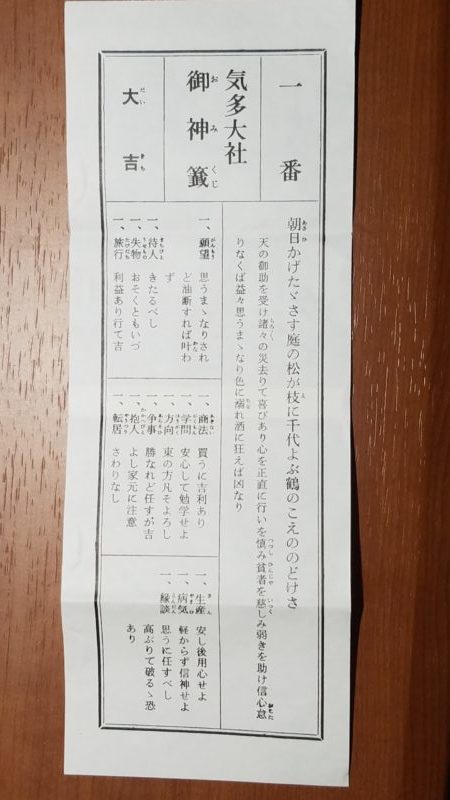 一番
気多大社
御神籤
大吉
朝日かげたゞさす庭の松が枝に千代よぶ鶴のこえののどけさ
天の御助を受け諸々の災去りて喜びあり心を正直に行いを慎み貧者を慈しみ弱きを助け信心怠
りなくば益々思うまゝなり色に溺れ酒に狂えば凶なり
一、願望 思うまゝなりされ
ど油断すれば叶わ
ず
一、待人 きたるべし
一、失物 おそくともいづ
一、旅行 利益あり行て吉
一、商法 買うに吉利あり
一、学問 安心して勉学せよ
一、方向 東の方凡そよろし
一、争事 勝なれど任すが吉
一、抱人 よし家元に注意
一、転居 さわりなし
一、生産 安し後用心せよ
一、病気 軽からず信神せよ
一、縁談 思うに任すべし
高ぶりて破るゝ恐
あり